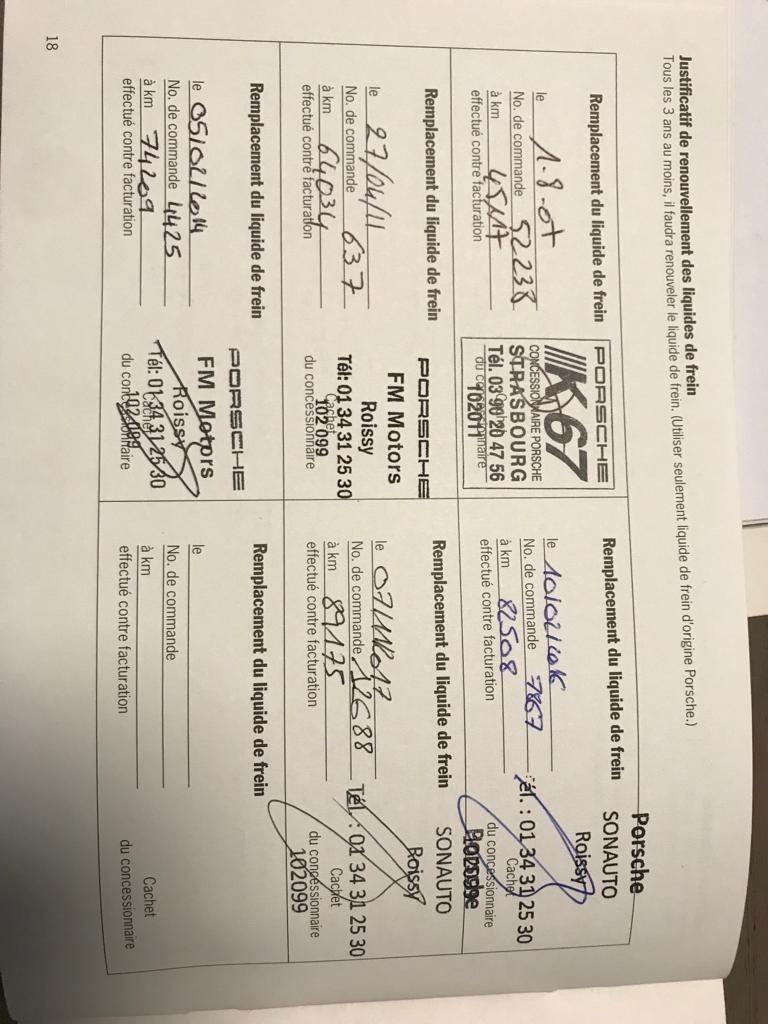 Justificatif de renouvellement des liquides de frein
Tous les 3 ans au moins, il faudra renouveler le liquide de frein. (Utiliser seulement liquide de frein d'origine Porsche.)
Remplacement du liquide de frein
le 1-8-07
No. de commande 52238
à km 45117
effectué contre facturation
PORSCHE
K67
CONCESSIONNAIRE PORSCHE
STRASBOURG
Tél. 03 90 20 47 56
du concessionnaire
102011
Remplacement du liquide de frein
le 10/02/2016
No. de commande 7867
à km 82508
effectué contre facturation
Porsche
SONAUTO
Roissy
Tél. : 01 34 31 25 30
Cachet
du concessionnaire
Remplacement du liquide de frein
le 27/04/11
No. de commande 637
à km 64034
effectué contre facturation
PORSCHE
FM Motors
Roissy
Tél: 01 34 31 25 30
Cachet
102 099
du concessionnaire
Remplacement du liquide de frein
le 07/11/2017
No. de commande 12688
à km 89175
effectué contre facturation
SONAUTO
Roissy
Tél. : 01 34 31 25 30
Cachet
du concessionnaire
102099
Remplacement du liquide de frein
le 05/02/2014
No. de commande 4425
à km 74209
effectué contre facturation
PORSCHE
FM Motors
Roissy
Tél: 01 34 31 25 30
Cachet
102 099
du concessionnaire
Remplacement du liquide de frein
le
No. de commande
à km
effectué contre facturation
Cachet
du concessionnaire
18